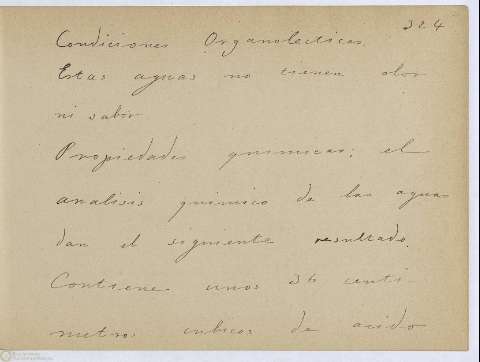 324
Condiciones Organolecticas
Estas aguas no tienen olor
ni sabor
Propiedades quimicas; el
analisis quimico de las aguas
dan el siguiente resultado.
Contiene unos 36 centi-
metros cubicos de acido